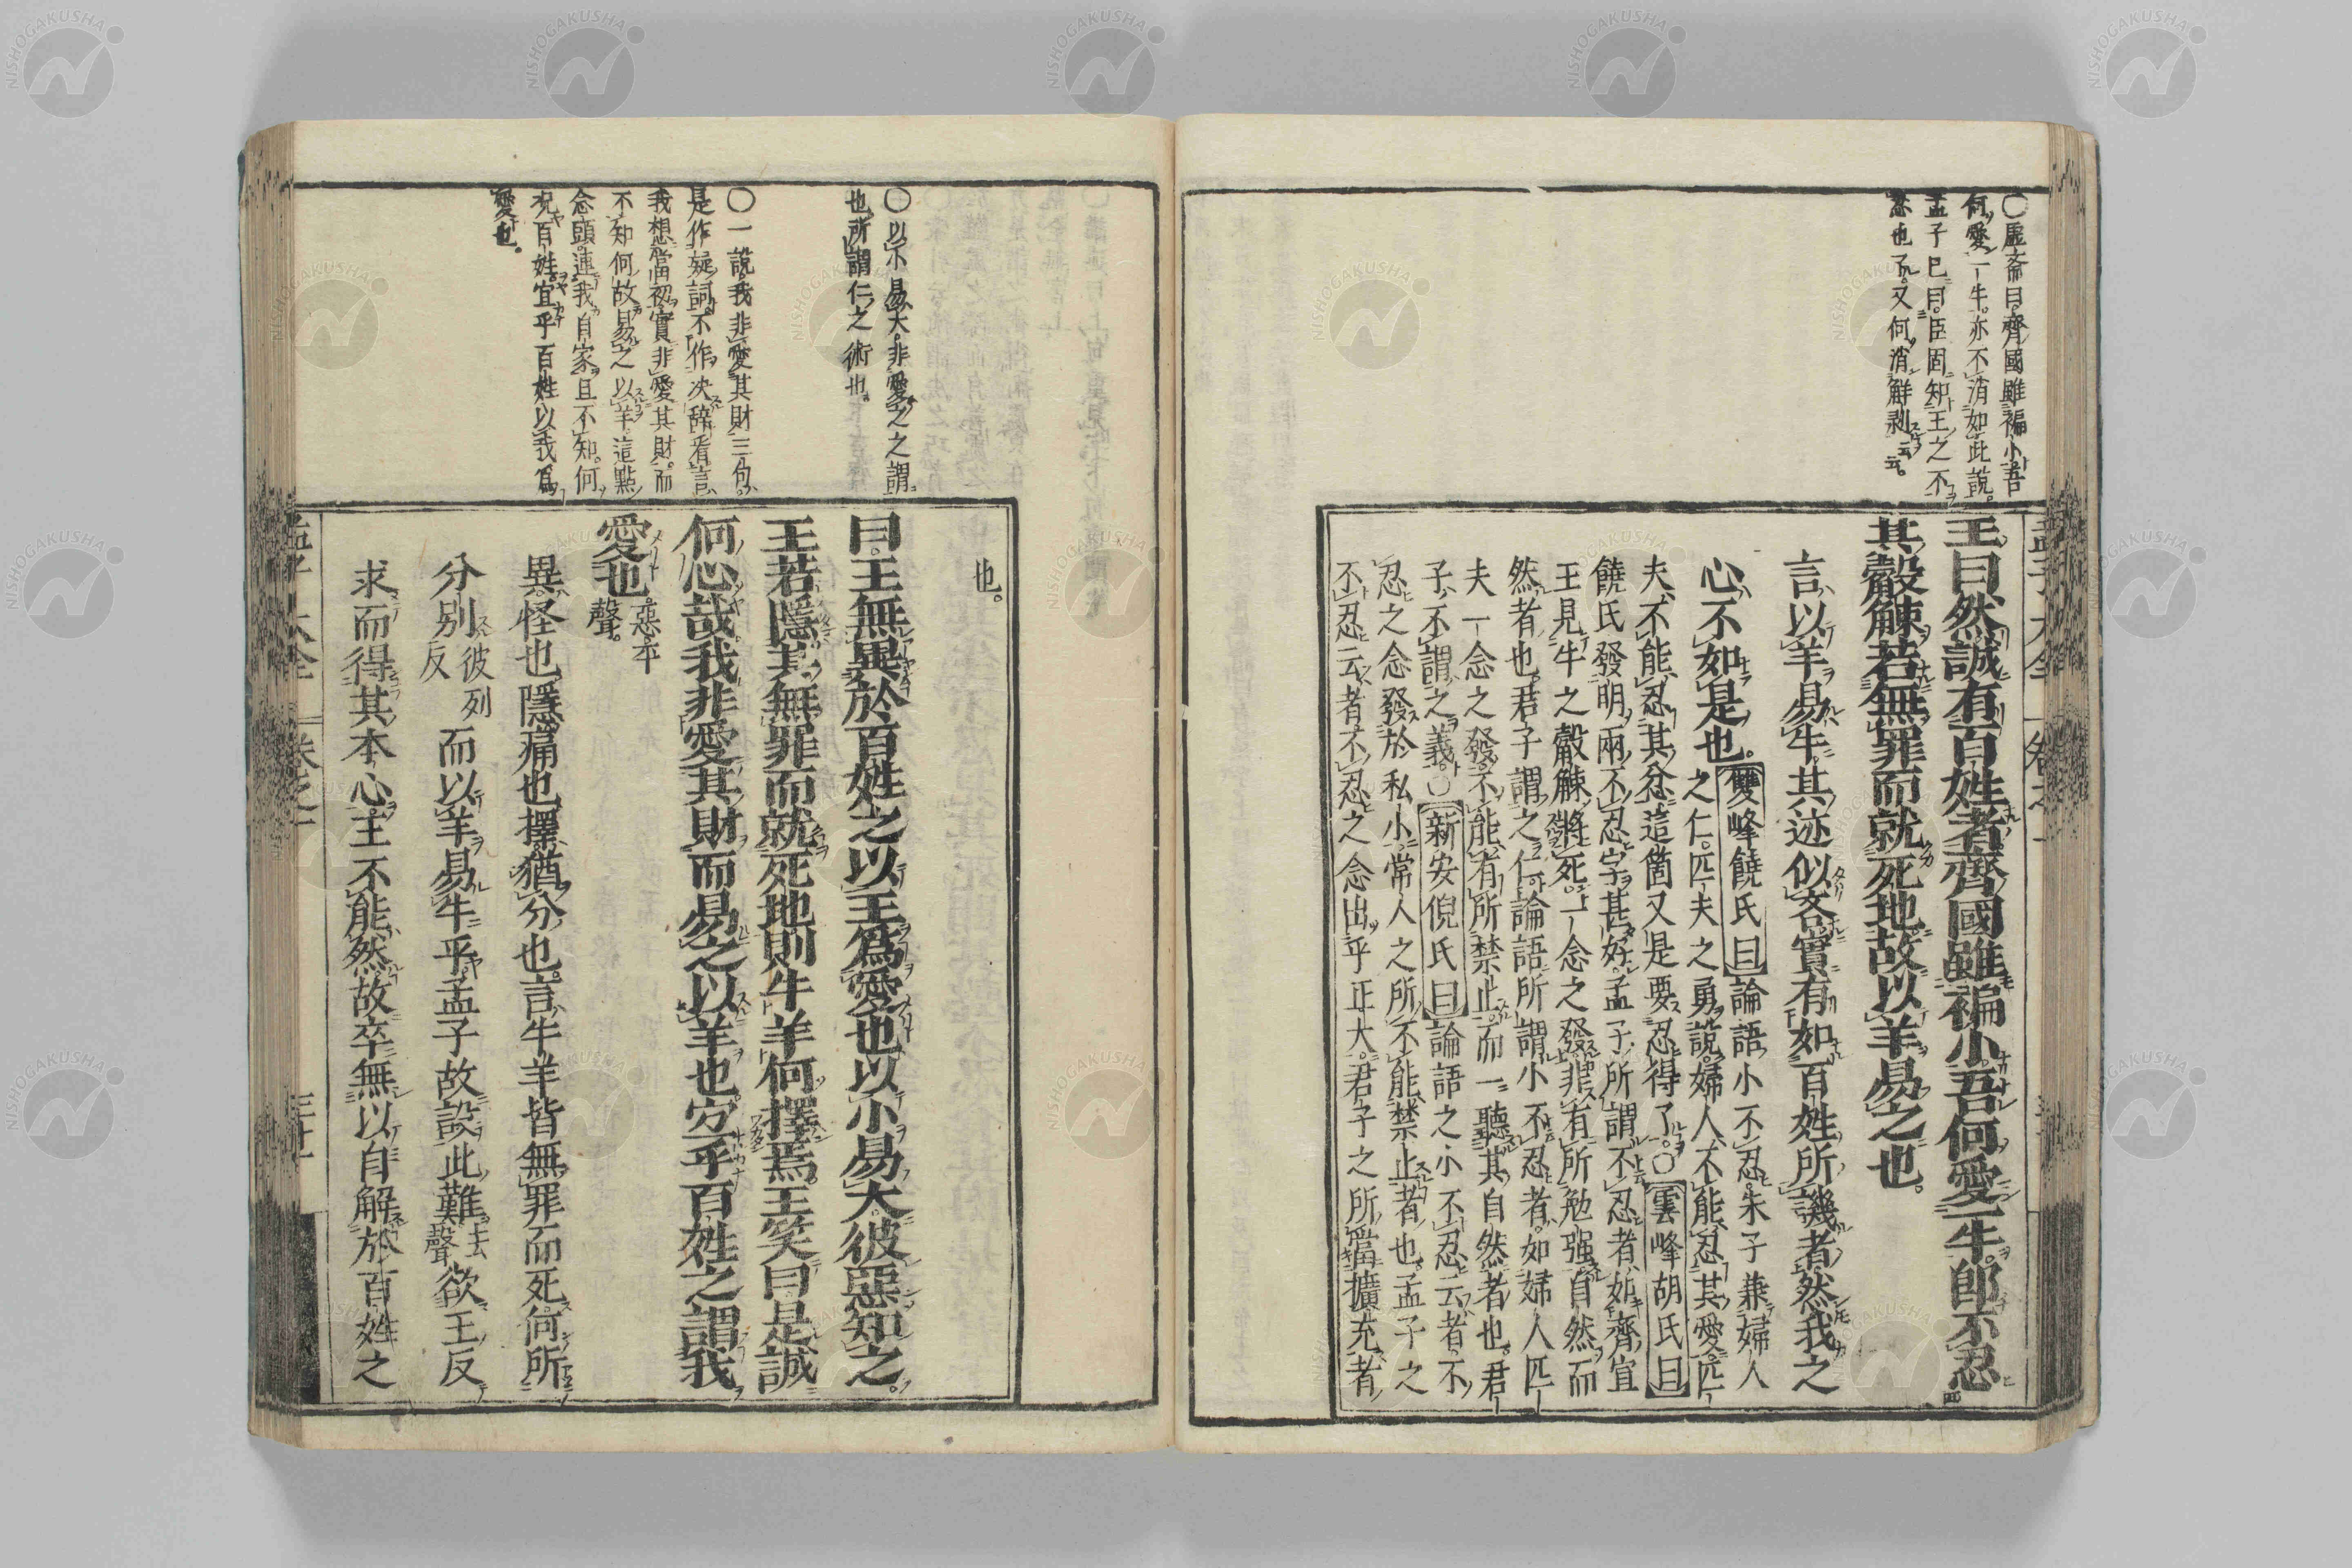 〇虛齋曰齊國雖褊小吾
何愛一牛亦不消如此說
孟子已曰臣固知王之不
忍也了又何消解剥云云
王曰然誠有百姓者齊國雖褊小吾何愛一牛卽不忍
其觳觫若無罪而就死地故以羊易之也
言以羊易牛其迹似吝實有如百姓所譏者然我之
心不如是也
雙峰饒氏曰論語小不忍朱子兼婦人
之仁匹夫之勇說婦人不能忍其愛匹
夫不能忍其忿這箇又是要忍得了〇雲峰胡氏曰
饒氏發明兩不忍字甚好孟子所謂不忍者如齊宣
王見牛之觳觫將死一念之發非有所勉强自然而
然者也君子謂之仁論語所謂小不忍者如婦人匹
夫一念之發不能有所禁止而一聽其自然者也君
子不謂之義〇新安倪氏曰論語之小不忍云者不
忍之念發於私小常人之所不能禁止者也孟子之
不忍云者不忍之念出乎正大君子之所當擴充者
〇以小易大非愛之之謂
也所謂仁之術也
〇一說我非愛其財三句
是作疑詞不作决辭看言
我想當初實非愛其財而
不知何故易之以羊這點
念頭連我自家且不知何
况百姓宜乎百姓以我爲
愛也
也
曰王無異於百姓之以王爲愛也以小易大彼惡知之
王若隱其無罪而就死地則牛羊何擇焉王笑曰是誠
何心哉我非愛其財而易之以羊也宜乎百姓之謂我
愛也
惡平
聲
異怪也隱痛也擇猶分也言牛羊皆無罪而死何所
分別
彼列
反
而以羊易牛乎孟子故設此難
去
聲
欲王反
求而得其本心王不能然故卒無以自解於百姓之